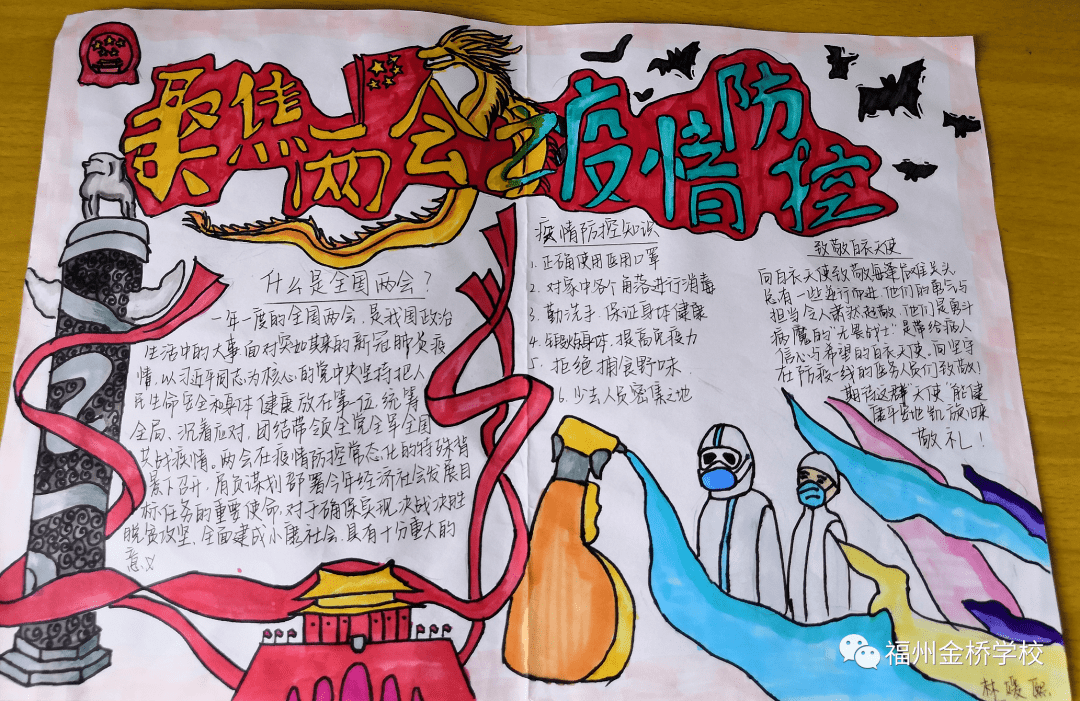 聚焦两会之疫情防控
什么是全国两会？
一年一度的全国两会，是我国政治
生活中的大事面对突如其来的新冠肺炎疫
情，以习近平同志为核心的党中央坚持把人
民生命安全和身体健康放在第一位，统筹
全局、沉着应对，团结带领全党全军全国
共战疫情。两会在疫情防控常态化的特殊背
景下召开，肩负谋划部署今年经济社会发展目
标任务的重要使命，对于确保实现决战决胜
脱贫攻坚，全面建成小康社会，具有十分重大的
意义
疫情防控知识
1. 正确使用医用口罩
2. 对家中各个角落进行消毒
3. 勤洗手，保证身体健康
4. 锻炼身体，提高免疫力
5. 拒绝捕食野味
6. 少去人员密集之地
致敬白衣天使
向白衣天使致敬每逢危难关头
总有一些逆行而进，他们的勇气与
担当令人肃然起敬，他们是勇斗
病魔的“无畏战士”是带给病人
信心与希望的白衣天使，向坚守
在防疫一线的医务人员们致敬！
期待这群“天使”能健
康平安地凯旋归来
敬礼！
福州金桥学校
林媛熙